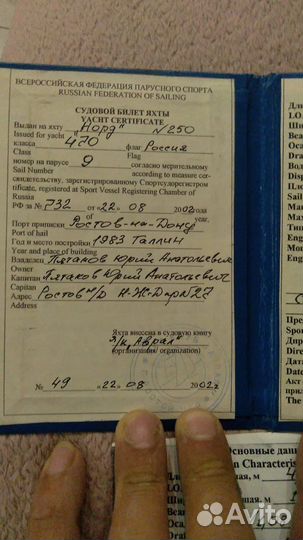 ВСЕРОССИЙСКАЯ ФЕДЕРАЦИЯ ПАРУСНОГО СПОРТА
RUSSIAN FEDERATION OF SAILING
СУДОВОЙ БИЛЕТ ЯХТЫ
YACHT CERTIFICATE
Выдан на яхту "Норд" N250
Issued for yacht
класса 470 флаг Россия
Class Flag
номер на парусе 9 согласно мерительному
Sail Number according to measure cer-
свидетельству, зарегистрированному Спортсудорегистром
tificate, registered at Sport Vessel Registering Chamber of
Russia
РФ за № 732 от 22. 08 2002 года
of year.
Порт приписки Ростов-на-Дону
Port of hail
Год и место постройки 1983 Таллин
Year and place of building
Владелец Пятаков Юрий Анатольевич
Owner
Капитан Пятаков Юрий Анатольевич
Capitan
Адрес Ростов н/Д
Address
Яхта внесена в судовую книгу
я/к "Аврал"
(организации/ organization)
№ 49 „22. 08 2002 г.
Основные дан
n Characteris
Avito